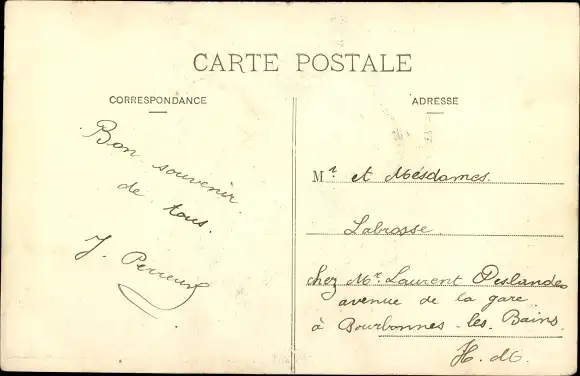 CARTE POSTALE
CORRESPONDANCE
Bon souvenir
de tous.
J.
ADRESSE
Mr et Mesdames.
Labrosse.
chez Mr Laurent Deslandes
avenue de la gare
à Bourbonnes-les-Bains
H.M.